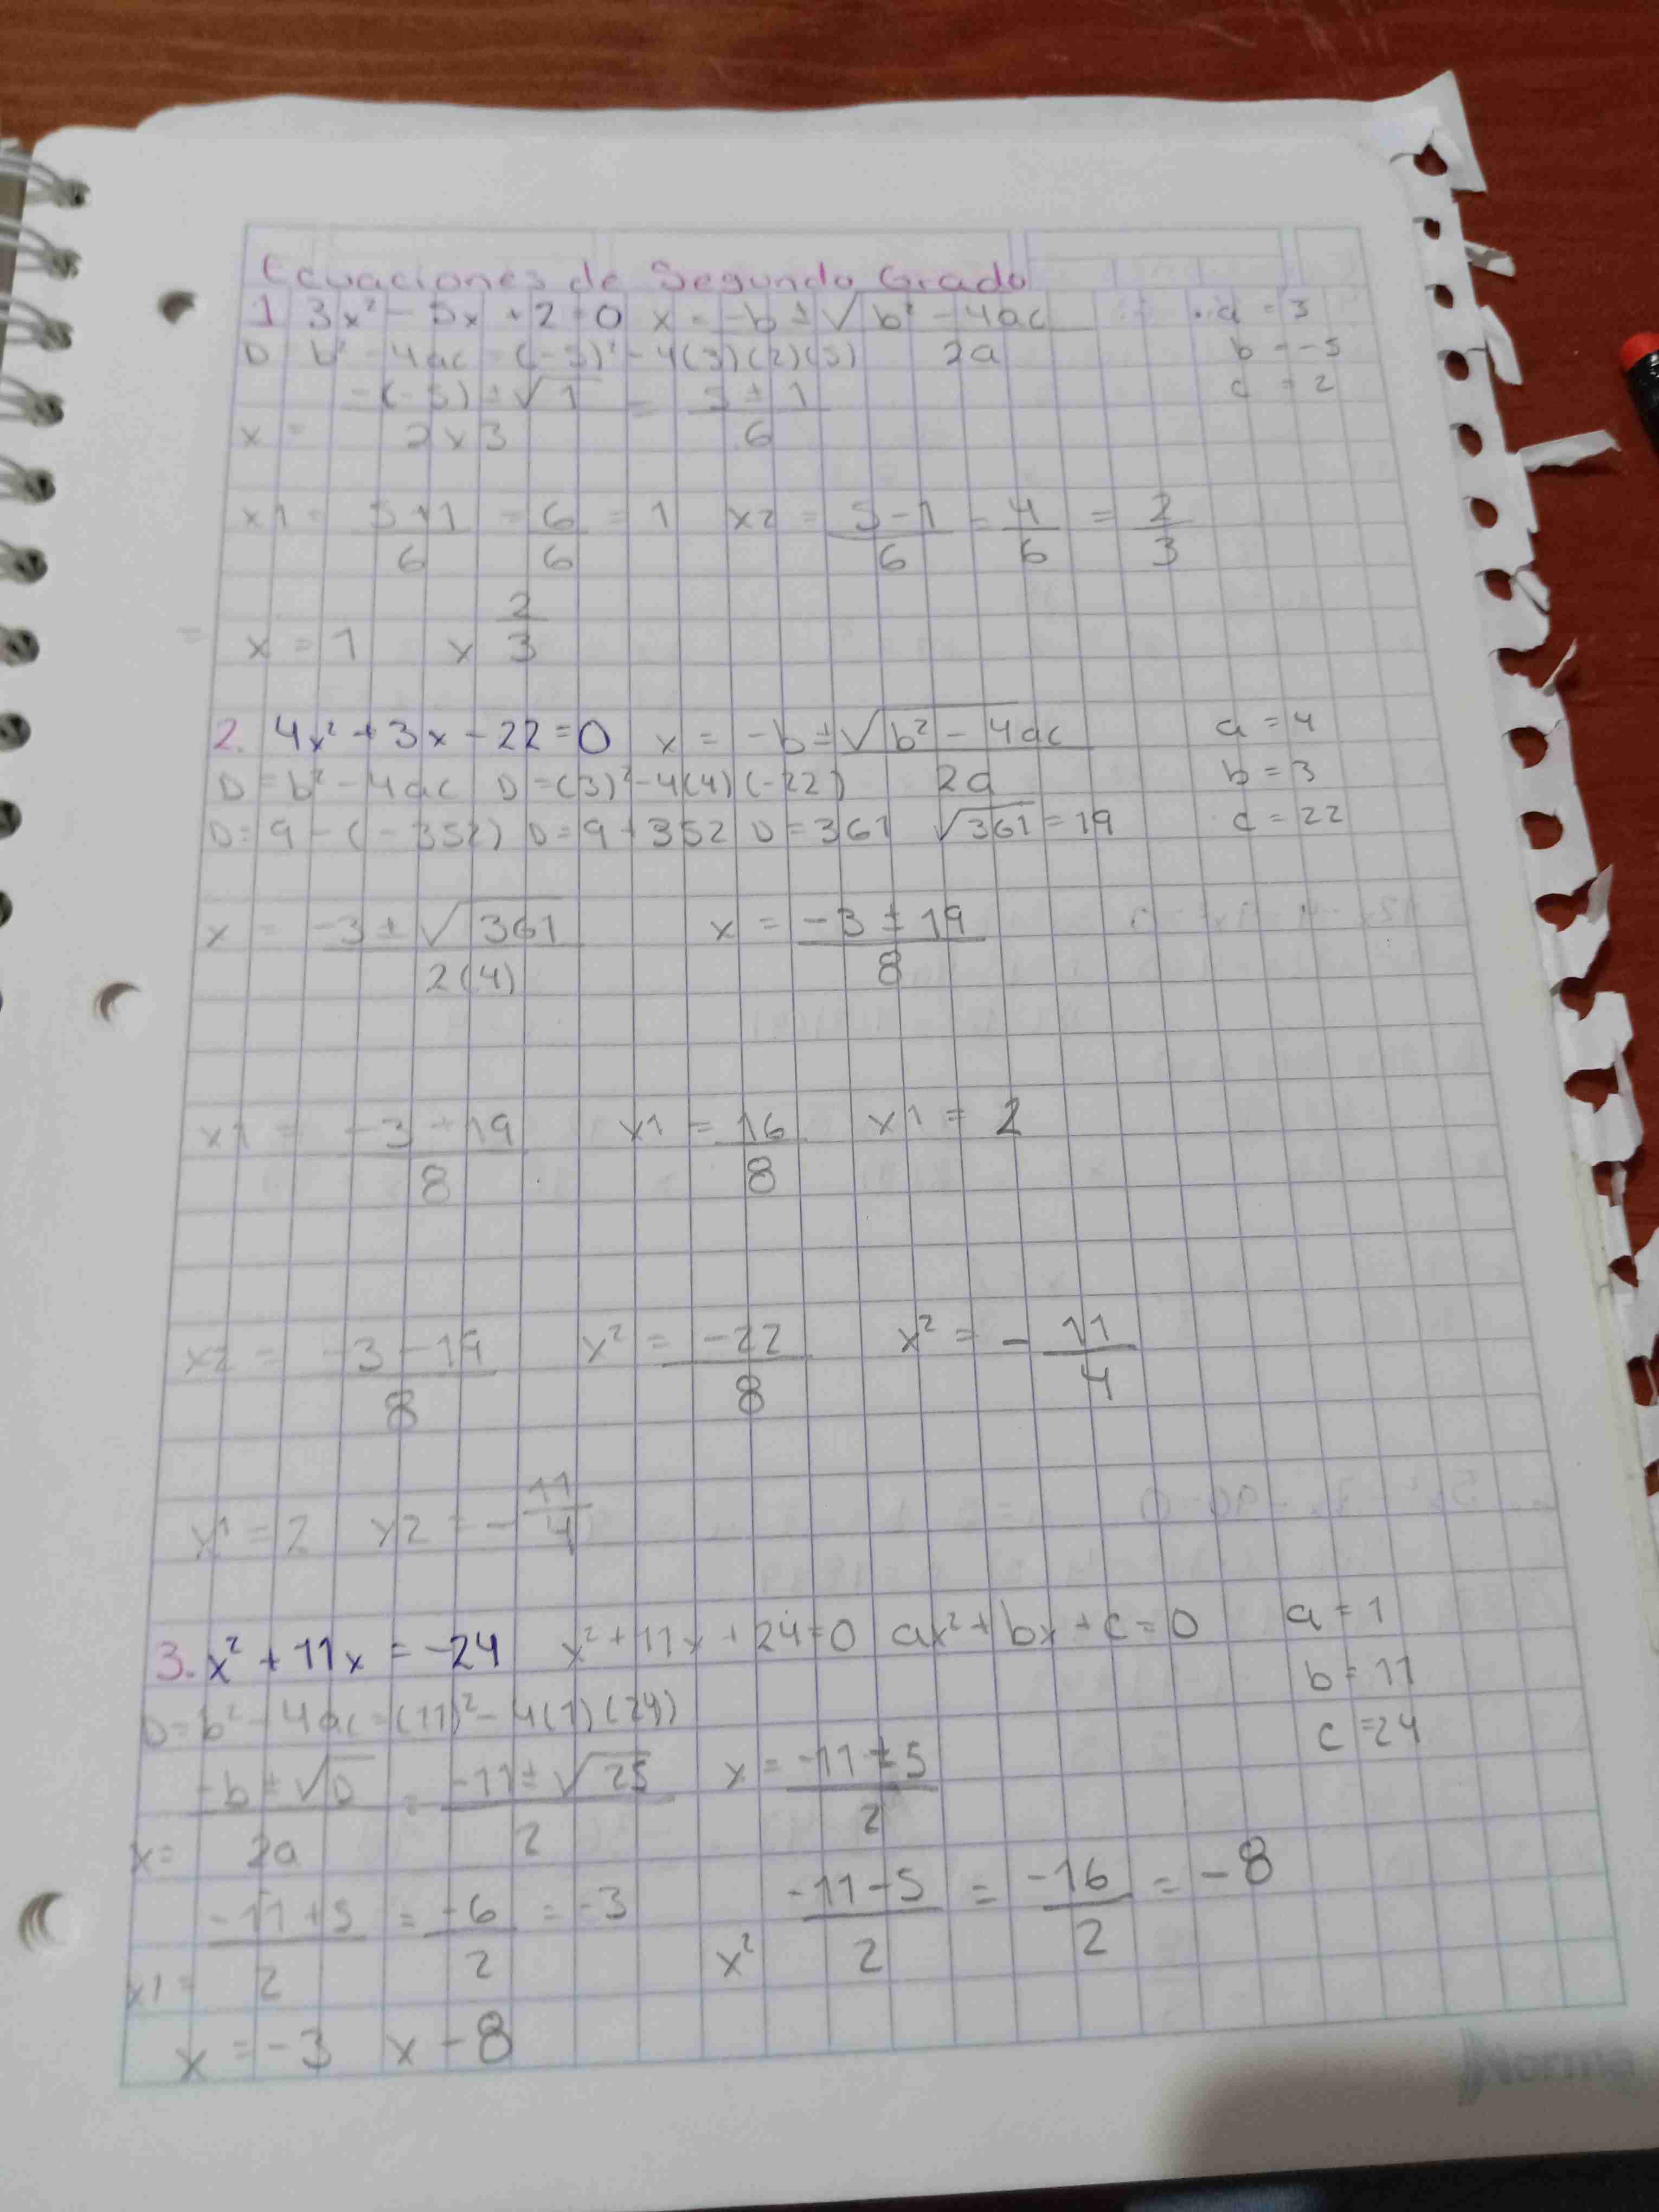 Ecuaciones de Segundo Grado
1 3x² - 5x + 2 = 0 x = -b ± √b² - 4ac a = 3
D = b² - 4ac = (-5)² - 4(3)(2)(5) 2a b = -5
-(-5) ± √1 = 5 ± 1 c = 2
x = 2 x 3 6
x1 = 5+1 = 6 = 1 x2 = 5-1 = 4 = 2
6 6 6 6 3
x = 1 x 2/3
2. 4x² + 3x - 22 = 0 x = -b ± √b² - 4ac a = 4
D = b² - 4ac D = (3)² - 4(4)(-22) 2a b = 3
D = 9 - (-352) D = 9 + 352 D = 361 √361 = 19 c = 22
x = -3 ± √361 x = -3 ± 19
2(4) 8
x1 = -3 + 19 x1 = 16 x1 = 2
8 8
x2 = -3 - 19 x² = -22 x² = - 11
8 8 4
x1 = 2 x2 = - 11/4
3. x² + 11x = -24 x² + 11x + 24 = 0 ax² + bx + c = 0 a = 1
b = 11
D = b² - 4ac = (11)² - 4(1)(24) c = 24
-b ± √D = -11 ± √25 x = -11 ± 5
x = 2a 2 2
-11 + 5 = -6 = -3 -11 - 5 = -16 = -8
x1 = 2 2 x² 2 2
x = -3 x - 8
Norma